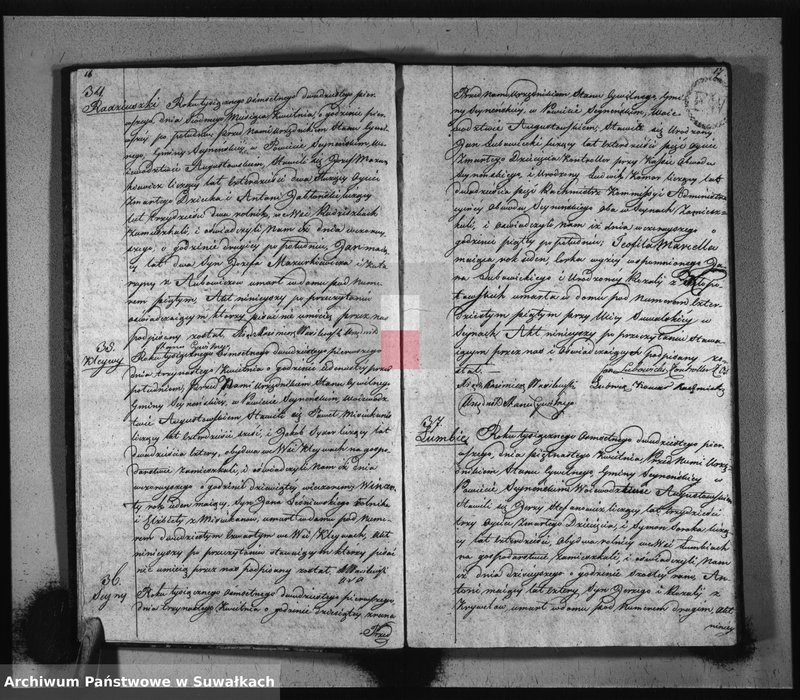 16
34
Radziuszki Roku tysiącznego Ośmsetnego dwudziestego pier=
wszego dnia Siódmego Miesiąca Kwietnia, o godzinie pier
wszej po południu, przed Nami Urzędnikiem Stanu Cywil=
nego, Gminy Seynenskiey, w Powiecie Seynenskim, Wo=
iewództwie Augustowskim, Stawili się Jozef Mazur
kiewicz liczący lat czterdzieści dwa Oyciec
Zmarłego Dziecka i Antoni liczący
lat trzydzieści dwa rolnik, we Wsi Radziuszkach
zamieszkali, i oświadczyli Nam iż dnia wczoray=
szego, o godzinie drugiey po południu, Jan maią=
cy lat dwa Syn Jozefa Mazurkiewicza i Kata
rzyny z umarł w domu pod Nume=
rem piątym. Akt ninieyszy po przeczytaniu
oświadczaiącym którzy pisać nie umieią przez nas
podpisany został.
Stanu Cywilnego
35.
Kleywy Roku tysiącznego Ośmsetnego dwudziestego pierwszego
dnia trzynastego Kwietnia o godzinie iedenastey przed
południem, Przed Nami Urzędnikiem Stanu Cywilnego
Gminy Seynenskiey, w Powiecie Seynenskim, Woiewódz=
twie Augustowskim Stawili się Paweł Misiukanis
liczący lat czterdzieści sześć, i Jakob liczący lat
dwadzieścia cztery, obydwa w Wsi Kleywach na gospo=
darstwie zamieszkali, i oświadczyli Nam iż dnia
wczorayszego o godzinie dziewiątey wieczorem, Wincen
ty rok ieden maiący, Syn Jana
i Elżbiety z umarł w domu pod Nume=
rem dwudziestym czwartym we Wsi Kleywach, Akt
ninieyszy po przeczytaniu stawaiącym którzy pisać
nie umieią przez nas podpisany został
36.
Seyny Roku tysiącznego Ośmsetnego dwudziestego pierwszego
dnia trzynastego Kwietnia o godzinie dziesiątey z rana
Przed
17
Przed Nami Urzędnikiem Stanu Cywilnego, Gmi
ny Seynenskiey, w Powiecie Seynenskim, Woie
wództwie Augustowskim, Stawili się Urodzony
Jan Lubowicki liczący lat czterdzieści pięć Oyciec
Zmarłego Dziecięcia Kontroller przy Kassie Obwodu
Seynenskiego, i Urodzony Ludwik liczący lat
dwadzieścia pięć Kommissyi Administra
cyiney Obwodu Seynenskiego oba w Seynach zamiesz=
kali, i oświadczyli Nam iż dnia wczorayszego o
godzinie piątey po południu, Teofila Marcella
maiąca rok ieden Corka wyżey wspomnionego Ja
na Lubowickiego i Urodzoney Rozalii z
umarła w domu pod Numerem czter
dziestym piątym przy Ulicy Suwalskiey w
Seynach. Akt ninieyszy po przeczytaniu Stawa
iącym przez nas i Oświadczaiących podpisany zo
stał.
Jan Lubowicki Kontroller
Kazimierz
Urzędnik Stanu Cywilnego
37.
Zumbie Roku tysiącznego Ośmsetnego dwudziestego pier
wszego, dnia piętnastego Kwietnia Przed Nami Urzę
dnikiem Stanu Cywilnego, Gminy Seynenskiey w
Powiecie Seynenskim Woiewództwie Augustowskim
Stawili się Jerzy Stefanowicz liczący lat trzydzieści
trzy Oyciec Zmarłego Dziecięcia, i Symon liczą
cy lat czterdzieści, Obydwa rolnicy we Wsi
na gospodarstwie zamieszkali, i oświadczyli Nam
iż dnia dzisieyszego o godzinie szóstey rano, An
toni maiący lat cztery, Syn Jerzego i Rozalii z
umarł w domu pod Numerem drugim Akt
ninieyszy
Archiwum Państwowe w Suwałkach